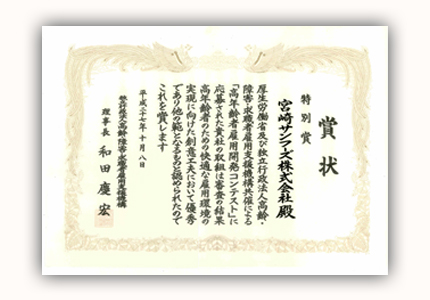 賞状
特別賞
宮崎サンフーズ株式会社殿
厚生労働省及び独立行政法人高齢・
障害・求職者雇用支援機構共催による
「高年齢者雇用開発コンテスト」に
応募された貴社の取組は審査の結果
高年齢者のための快適な雇用環境の
実現に向けた創意工夫において優秀
であり他の範となるものと認められたので
これを賞します
平成二十七年十月八日
独立行政法人高齢・障害・求職者雇用支援機構
理事長 和田慶宏